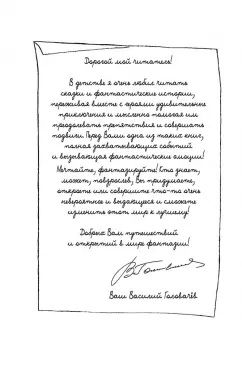 Дорогой мой читатель!
В детстве я очень любил читать
сказки и фантастические истории,
переживая вместе с героями удивительные
приключения и мысленно помогая им
преодолевать препятствия и совершать
подвиги. Перед Вами одна из таких книг,
полная захватывающих событий
и вызывающая фантастические эмоции!
Мечтайте, фантазируйте! Кто знает,
может, повзрослев, Вы придумаете,
откроете или совершите что-то очень
невероятное и выдающееся и сможете
изменить этот мир к лучшему!
Добрых Вам путешествий
и открытий в мире фантазии!
Ваш Василий Головачёв